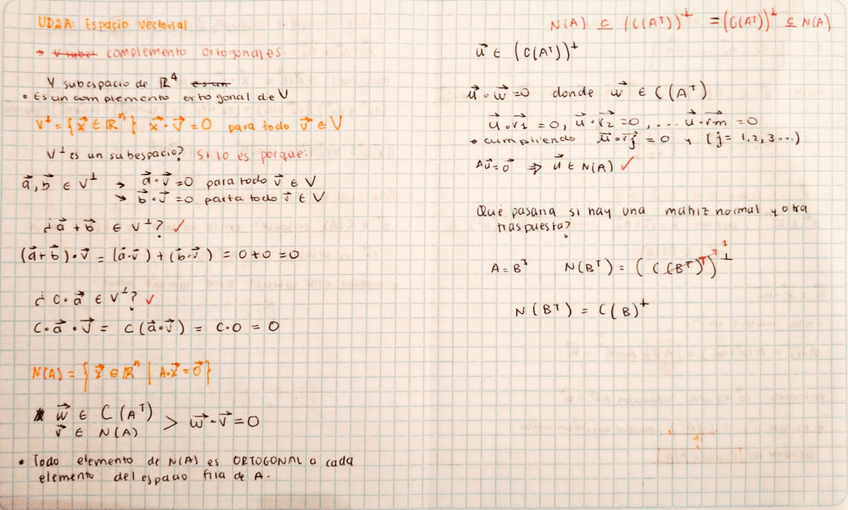 UD2A: Espacio Vectorial
→ complemento ortogonales.
V subespacio de ℝ⁴ es un
• Es un complemento ortogonal de V
V⊥ = { x⃗ ∈ ℝⁿ } x⃗ · v⃗ = 0 para todo v⃗ ∈ V
V⊥ es un subespacio? Si lo es porque:
a⃗, b⃗ ∈ V⊥ → a⃗ · v⃗ = 0 para todo v⃗ ∈ V
→ b⃗ · v⃗ = 0 para todo v⃗ ∈ V
¿ a⃗ + b⃗ ∈ V⊥? ✓
(a⃗ + b⃗) · v⃗ = (a⃗·v⃗) + (b⃗·v⃗) = 0 + 0 = 0
¿ c · a⃗ ∈ V⊥? ✓
c · a⃗ · v⃗ = c (a⃗ · v⃗) = c · 0 = 0
N(A) = { x⃗ ∈ ℝⁿ | A · x⃗ = 0⃗ }
w⃗ ∈ C (Aᵀ)
v⃗ ∈ N(A) > w⃗ · v⃗ = 0
• Todo elemento de N(A) es ORTOGONAL a cada
elemento del espacio fila de A.
N(A) ⊆ (C(Aᵀ))⊥ = (C(Aᵀ))⊥ ⊆ N(A)
u⃗ ∈ (C(Aᵀ))⊥
u⃗ · w⃗ = 0 donde w⃗ ∈ C(Aᵀ)
u⃗ · r⃗1 = 0, u⃗ · r⃗2 = 0, ... u⃗ · r⃗m = 0
• cumpliendo u⃗ · r⃗j = 0 y (j = 1, 2, 3 ...)
Au⃗ = 0⃗ ⇒ u⃗ ∈ N(A) ✓
Que pasaria si hay una matriz normal y otra
traspuesta?
A = Bᵀ N(Bᵀ) = (C(Bᵀ)ᵀ)⊥
N(Bᵀ) = C(B)⊥